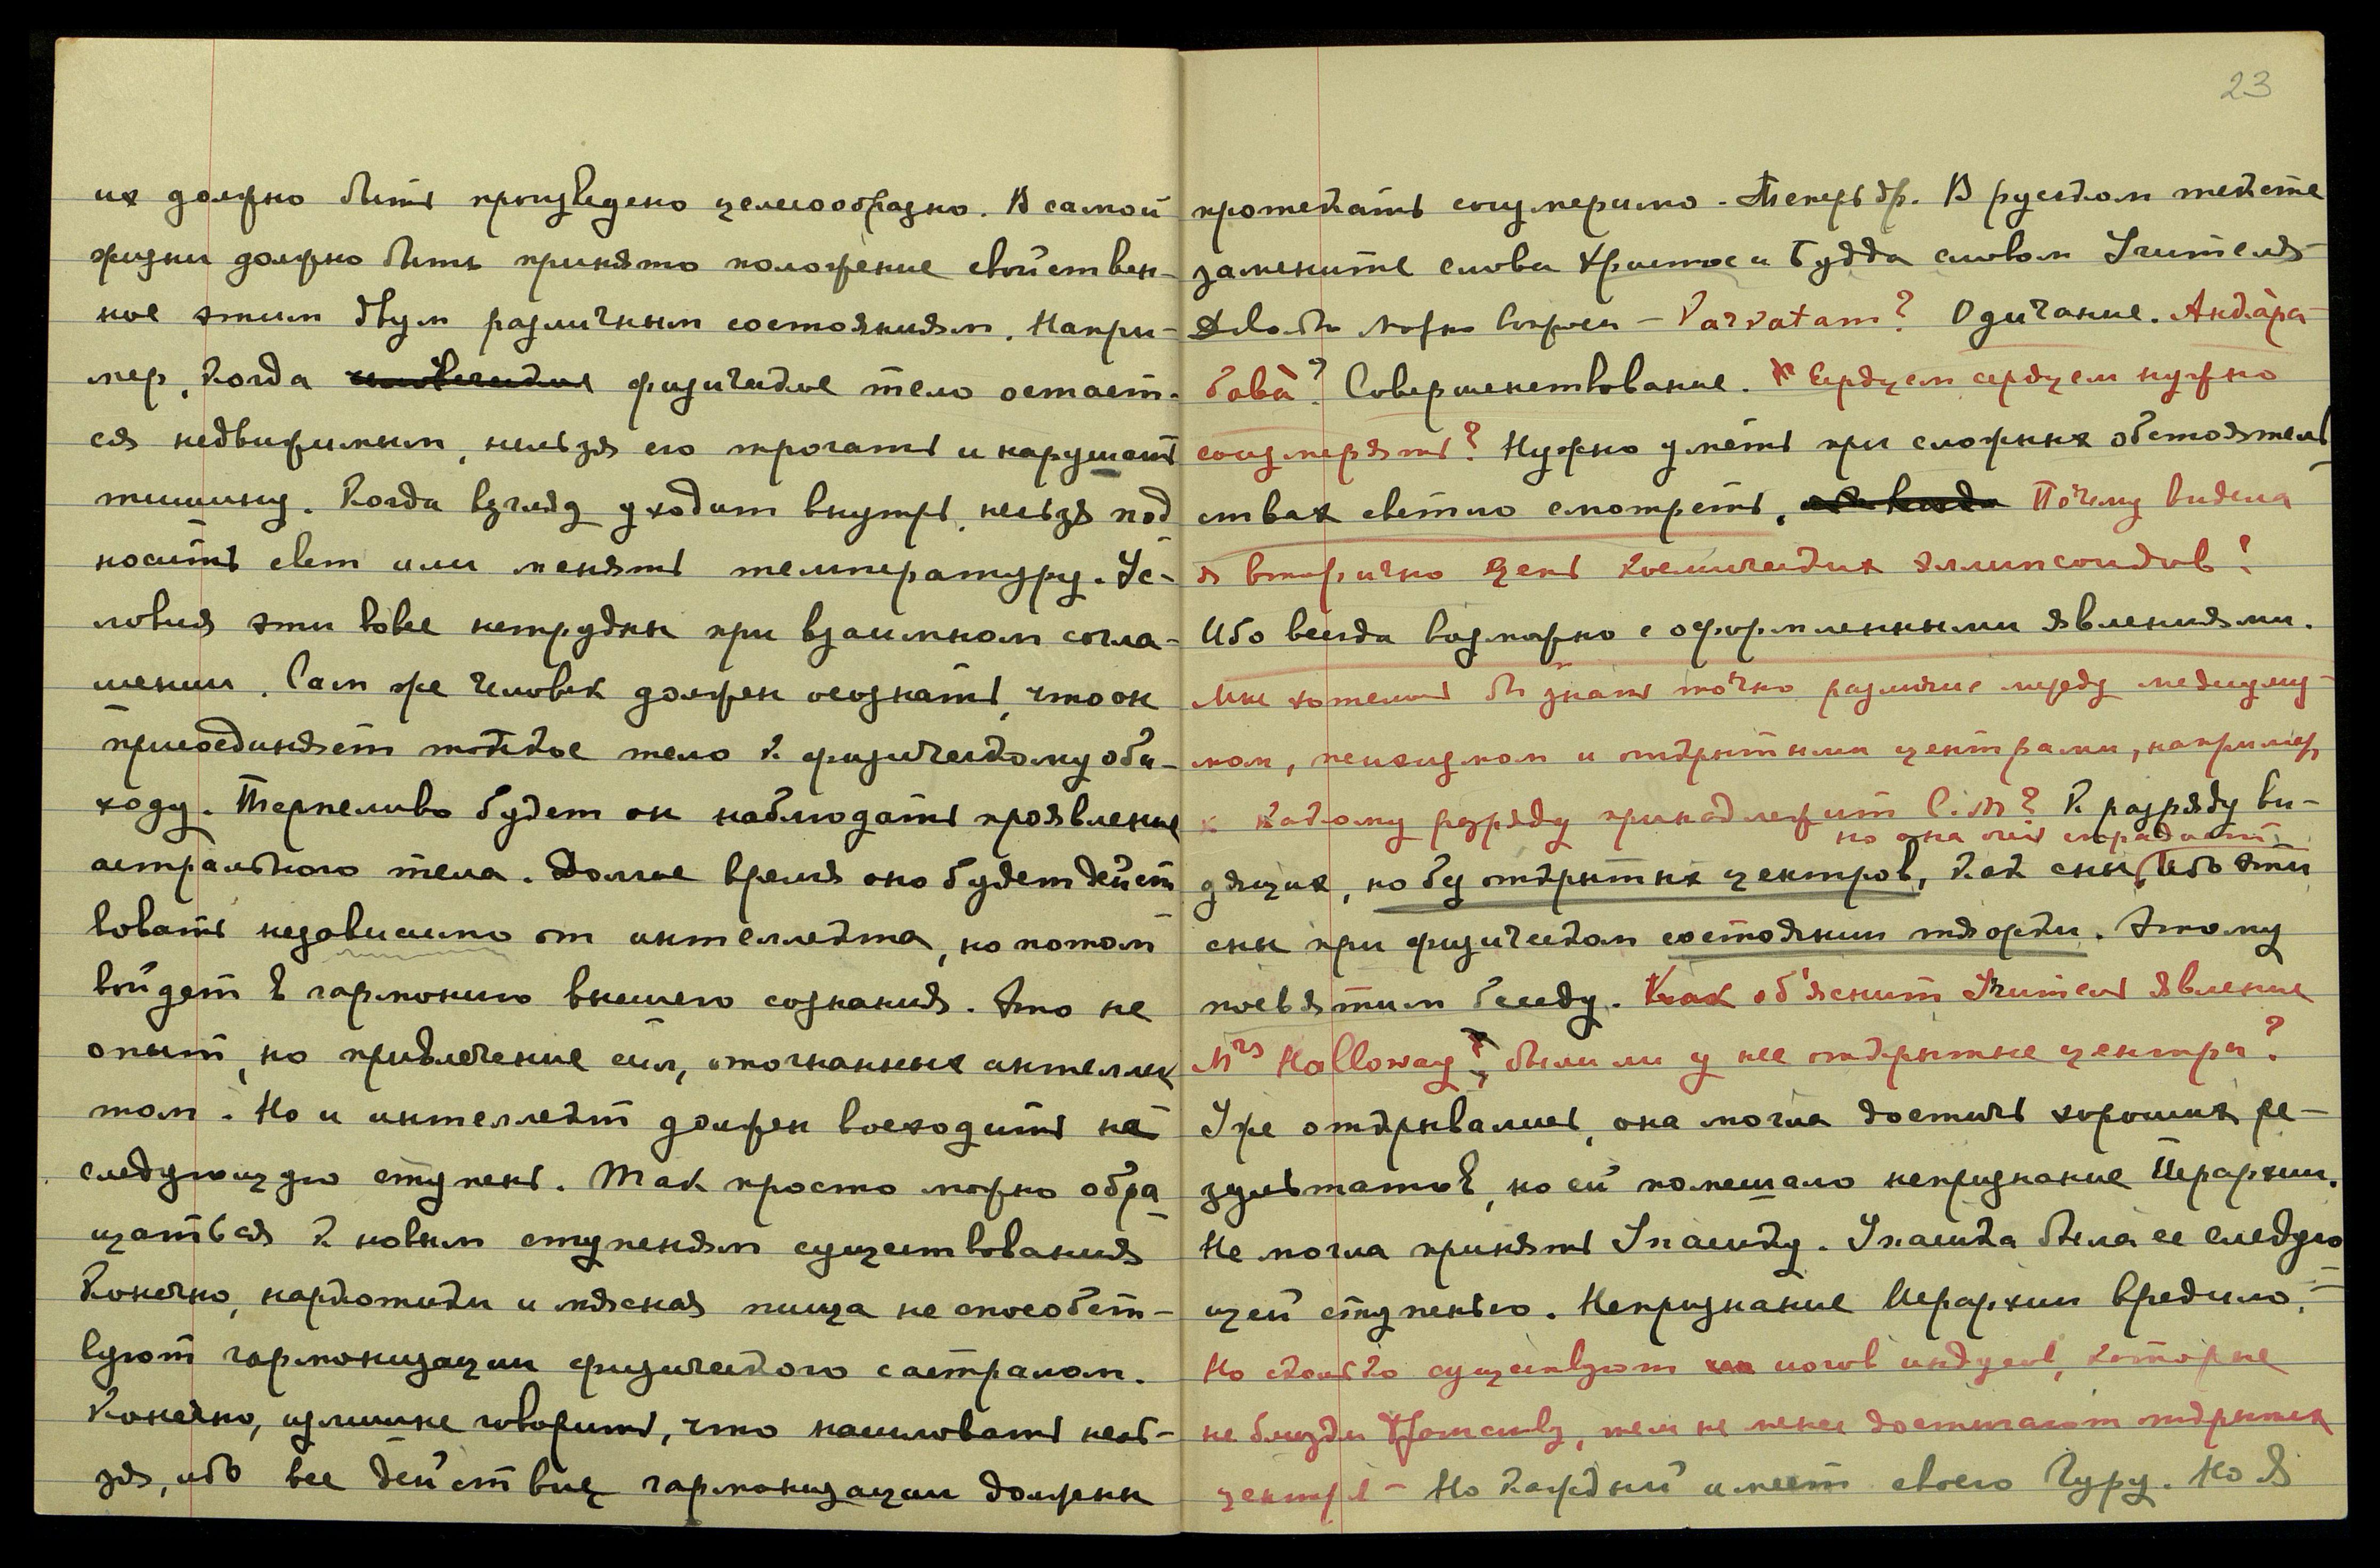 их должно быть произведено целесообразно. В самой
жизни должно быть принято положение свойствен-
ное этим двум различным состояниям. Напри-
мер, когда физическое тело остает-
ся недвижимым, нельзя его трогать и нарушать
тишину. Когда взгляд уходит внутрь, нельзя под
носить свет или менять температуру. Ус-
ловия эти вовсе нетрудны при взаимном согла-
шении. Сам же человек должен осознать, что он
приобщает тонкое тело к физическому оби-
ходу. Терпеливо будет он наблюдать проявление
астрального тела. Долгое время оно будет дейст
вовать независимо от интеллекта, но потом
войдет в гармонию внешнего сознания. Это не
опыт, но привлечение сил, отогнанных интеллек
том. Но и интеллект должен восходить на
следующую ступень. Так просто можно обра
щаться к новым ступеням существования
Конечно, наркотики и мясная пища не способст-
вуют гармонизации физического с астралом.
Конечно, излишне говорить, что насиловать нель-
зя, ибо все действия гармонизации должны
23
протекать соизмеримо - Теперь др. В русском тексте
замените слова Христос и Будда словом Учителя
можно вопрос - Parvatam? Одичание. Андара
бава? Совершенствование. Сердцем сердцем нужно
соизмерять? Нужно уметь при сложных обстоятель
ствах светло смотреть, Почему видела
я вторично цепь космических эллипсоидов?
Ибо всегда возможно с оформленными явлениями.
Мне хотелось бы знать точно различие между медиумиз-
мом, психизмом и открытыми центрами, например,
к какому разряду принадлежит С.М? К разряду ви-
но она очень страдает
дящих, но без открытых центров, как сны, Ибо эти
сны при физическом состоянии тягорды. Этому
посвятим беседу. Как об'яснит Учитель явление
Mrs Halloway? были ли у нее открытые центры?
Уже открывались, она могла достичь хороших ре-
зультатов, но ей помешало непризнание Иерархии.
Не могла принять Упасику. Упасика была ее следую
щей ступенью. Непризнание Иерархии вредило.
Но сколько существует иогов индусов, которые
не близки, тем не менее достигают открытых
центров - Но каждый имеет своего Гуру. Но я